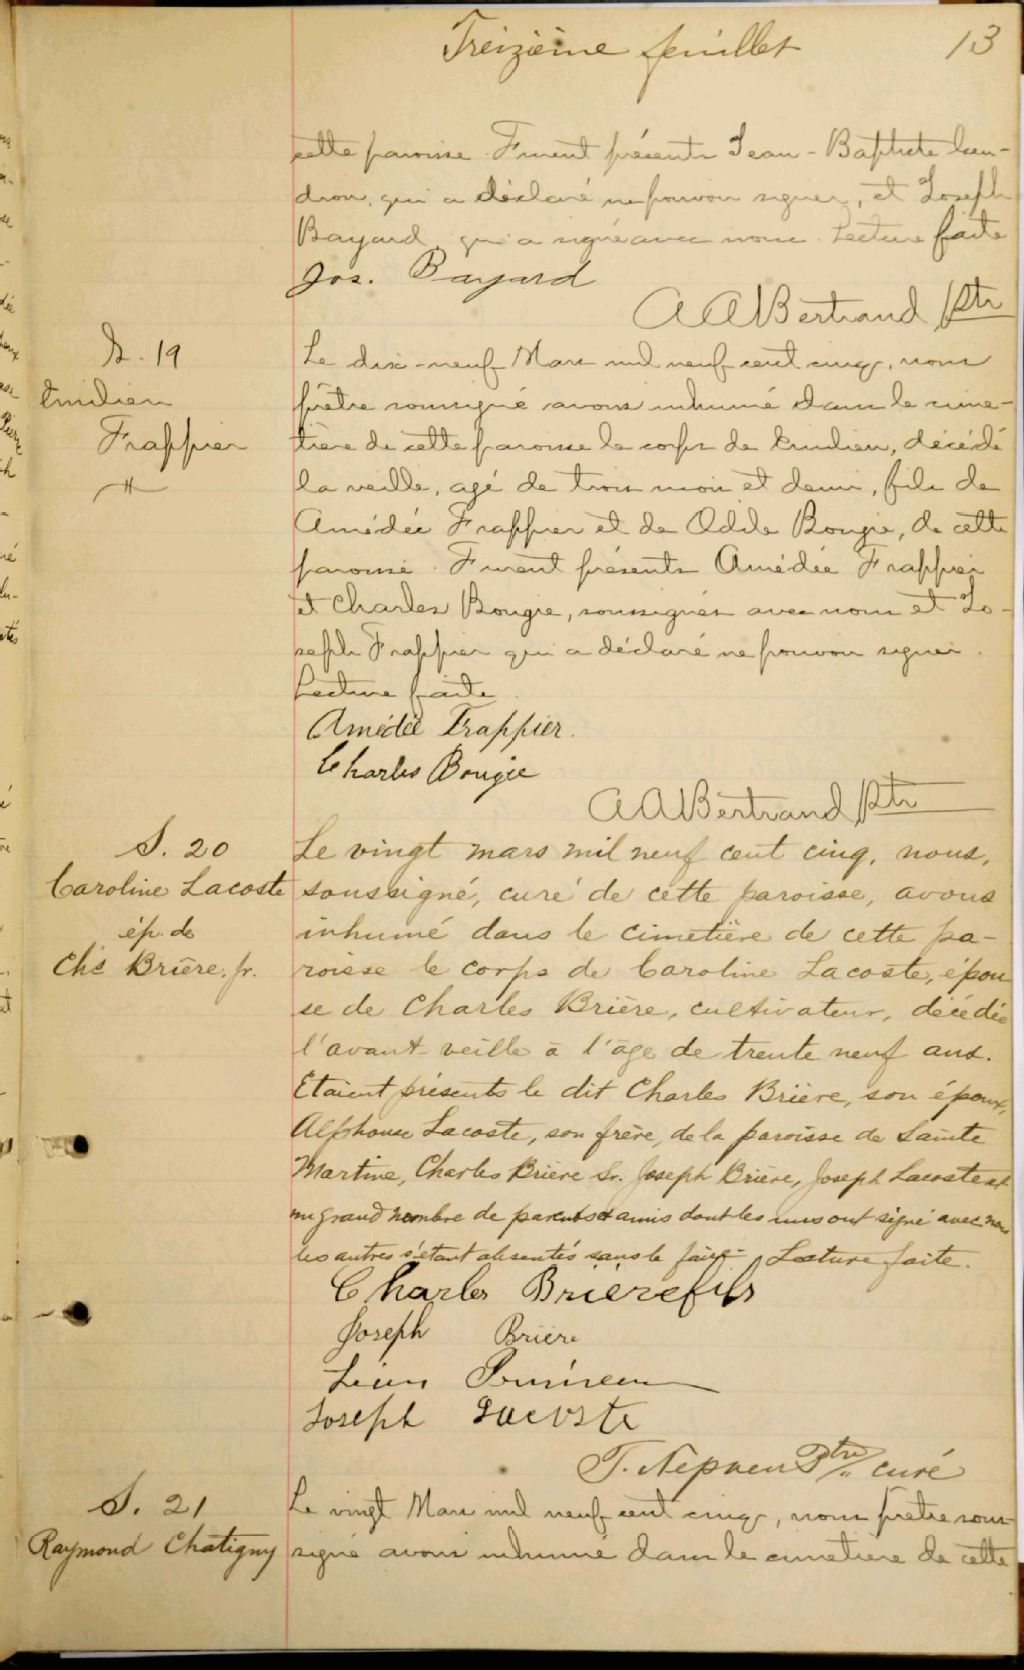 Treizième feuillet 13
cette paroisse. Furent présents Jean-Baptiste
dron, qui a déclaré ne pouvoir signer, et Joseph
Bayard, qui a signé avec nous. Lecture faite
Jos. Bayard
A A Bertrand Ptr
S. 19
Emilien
Frappier
Le dix-neuf Mars mil neuf cent cinq, nous
prêtre soussigné avons inhumé dans le cime-
tière de cette paroisse le corps de Emilien, décédé
la veille, agé de trois mois et demi, fils de
Amédée Frappier et de Odile Bougie, de cette
paroisse. Furent présents Amédée Frappier
et Charles Bougie, soussignés avec nous et Jo-
seph Frappier qui a déclaré ne pouvoir signer.
Lecture faite.
Amédée Frappier.
Charles Bougie
A A Bertrand Ptr
S. 20
Caroline Lacoste
ép. de
Chs Brière. jr.
Le vingt mars mil neuf cent cinq, nous,
soussigné, curé de cette paroisse, avons
inhumé dans le cimetière de cette pa-
roisse le corps de Caroline Lacoste, épou
se de Charles Brière, cultivateur, décédée
l'avant-veille à l'âge de trente neuf ans.
Etaient présents le dit Charles Brière, son époux,
Alphonse Lacoste, son frère, de la paroisse de Sainte
Martine, Charles Brière Sr. Joseph Brière, Joseph Lacoste et
un grand nombre de parents et amis dont les uns ont signé avec nous
les autres s'étant absentés sans le faire. Lecture faite.
Charles Brière fils
Joseph Brière
Joseph Lacoste
T. Nepveu Ptre curé
S. 21
Raymond Chatigny
Le vingt Mars mil neuf cent cinq, nous prêtre sous-
signé avons inhumé dans le cimetière de cette